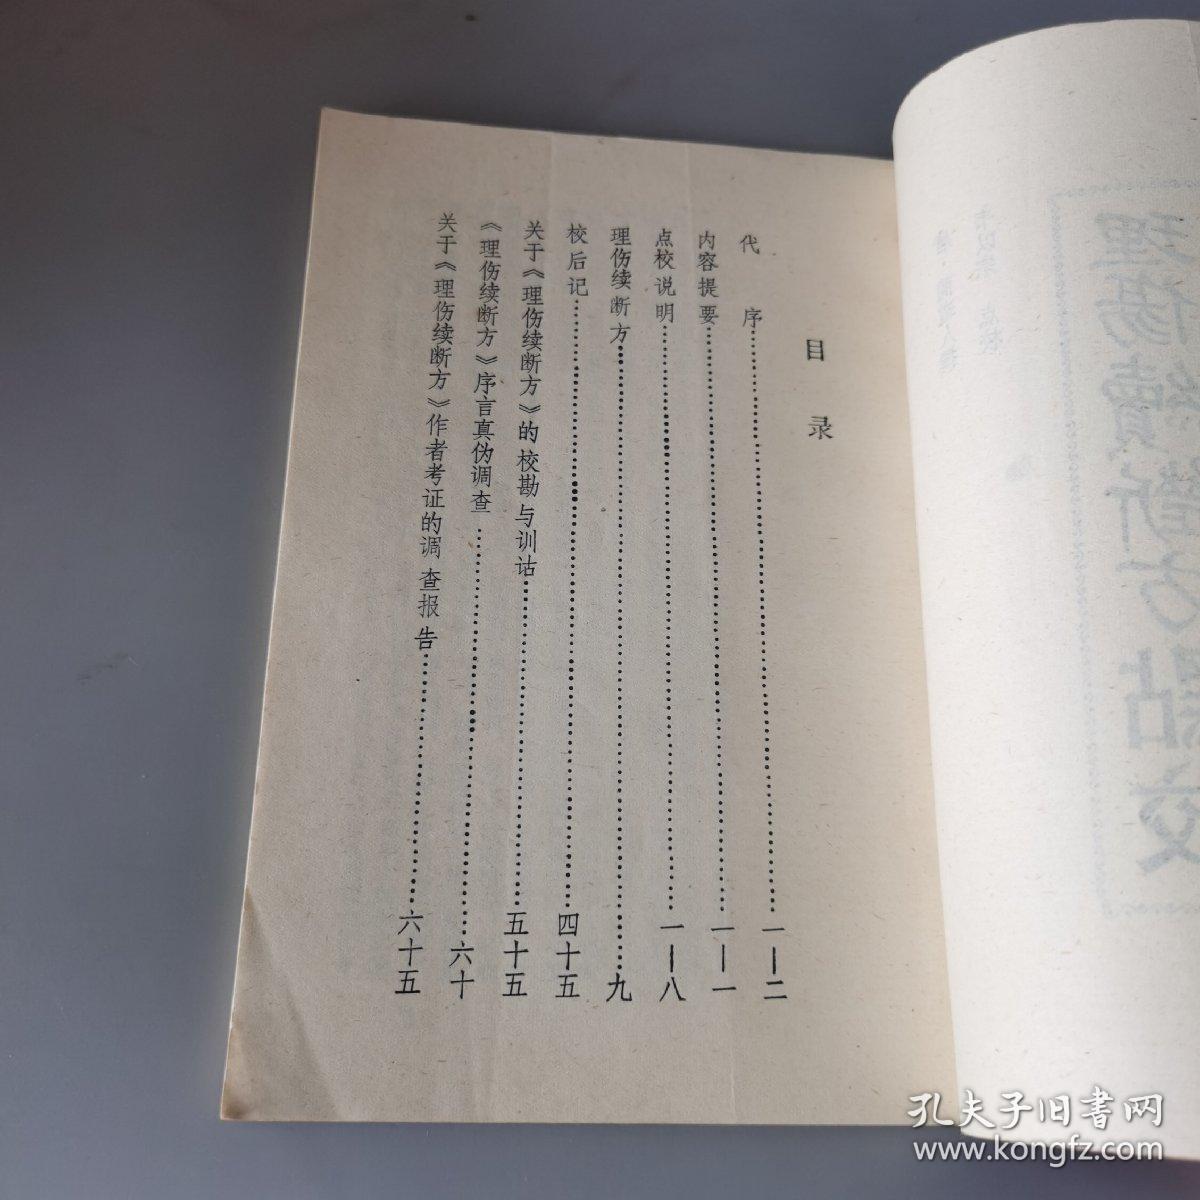 目录
代序…………一—二
内容提要…………一—一
点校说明…………一—八
理伤续断方…………九
校后记…………四十五
关于《理伤续断方》的校勘与训诂…………五十五
《理伤续断方》序言真伪调查…………六十
关于《理伤续断方》作者考证的调查报告…………六十五
理傷續斷方點校
孔夫子旧书网
www.kongfz.com